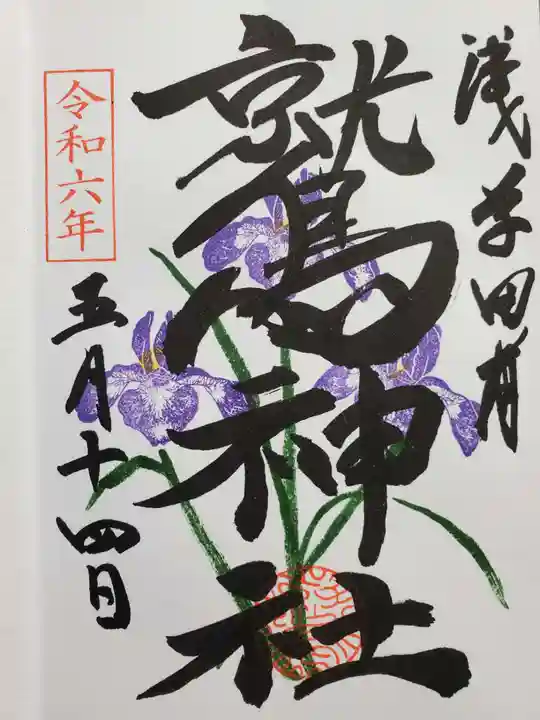 浅草田甫
鷲神社
令和六年
五月十四日